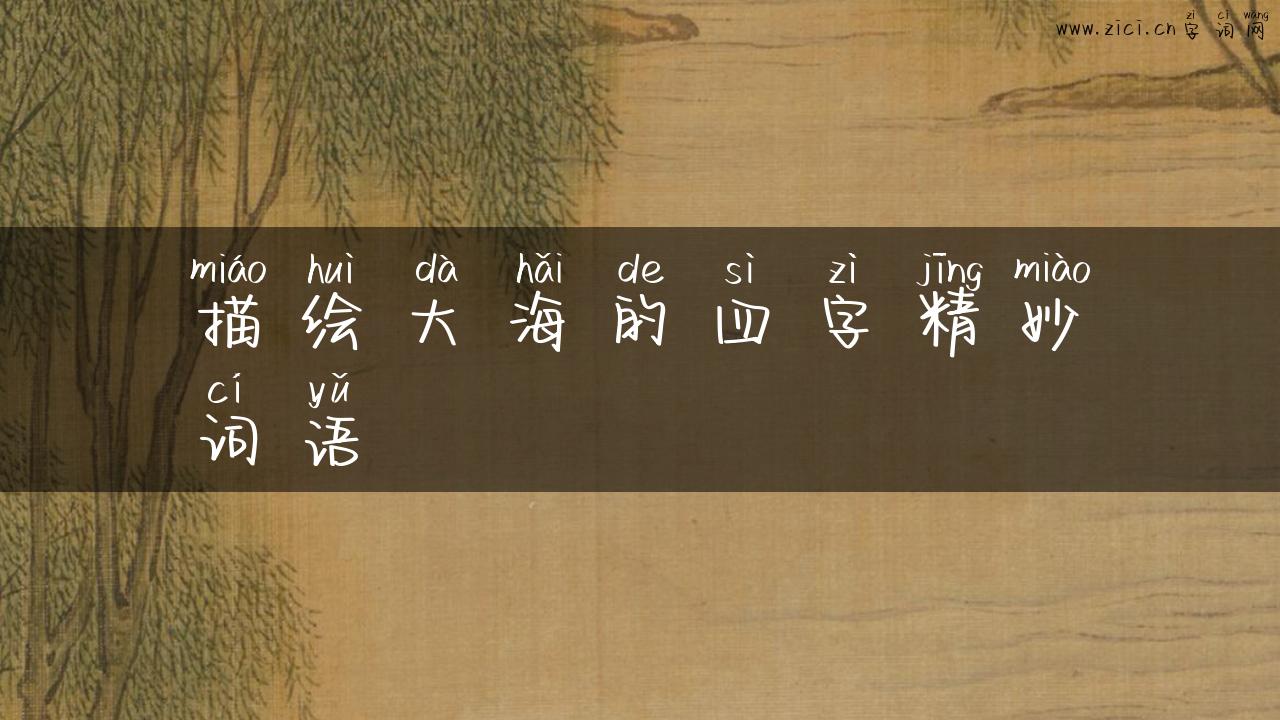 zì cí wǎng
www.zici.cn字词网
miáo huì dà hǎi de sì zì jīng miào
描绘大海的四字精妙
cí yǔ
词语